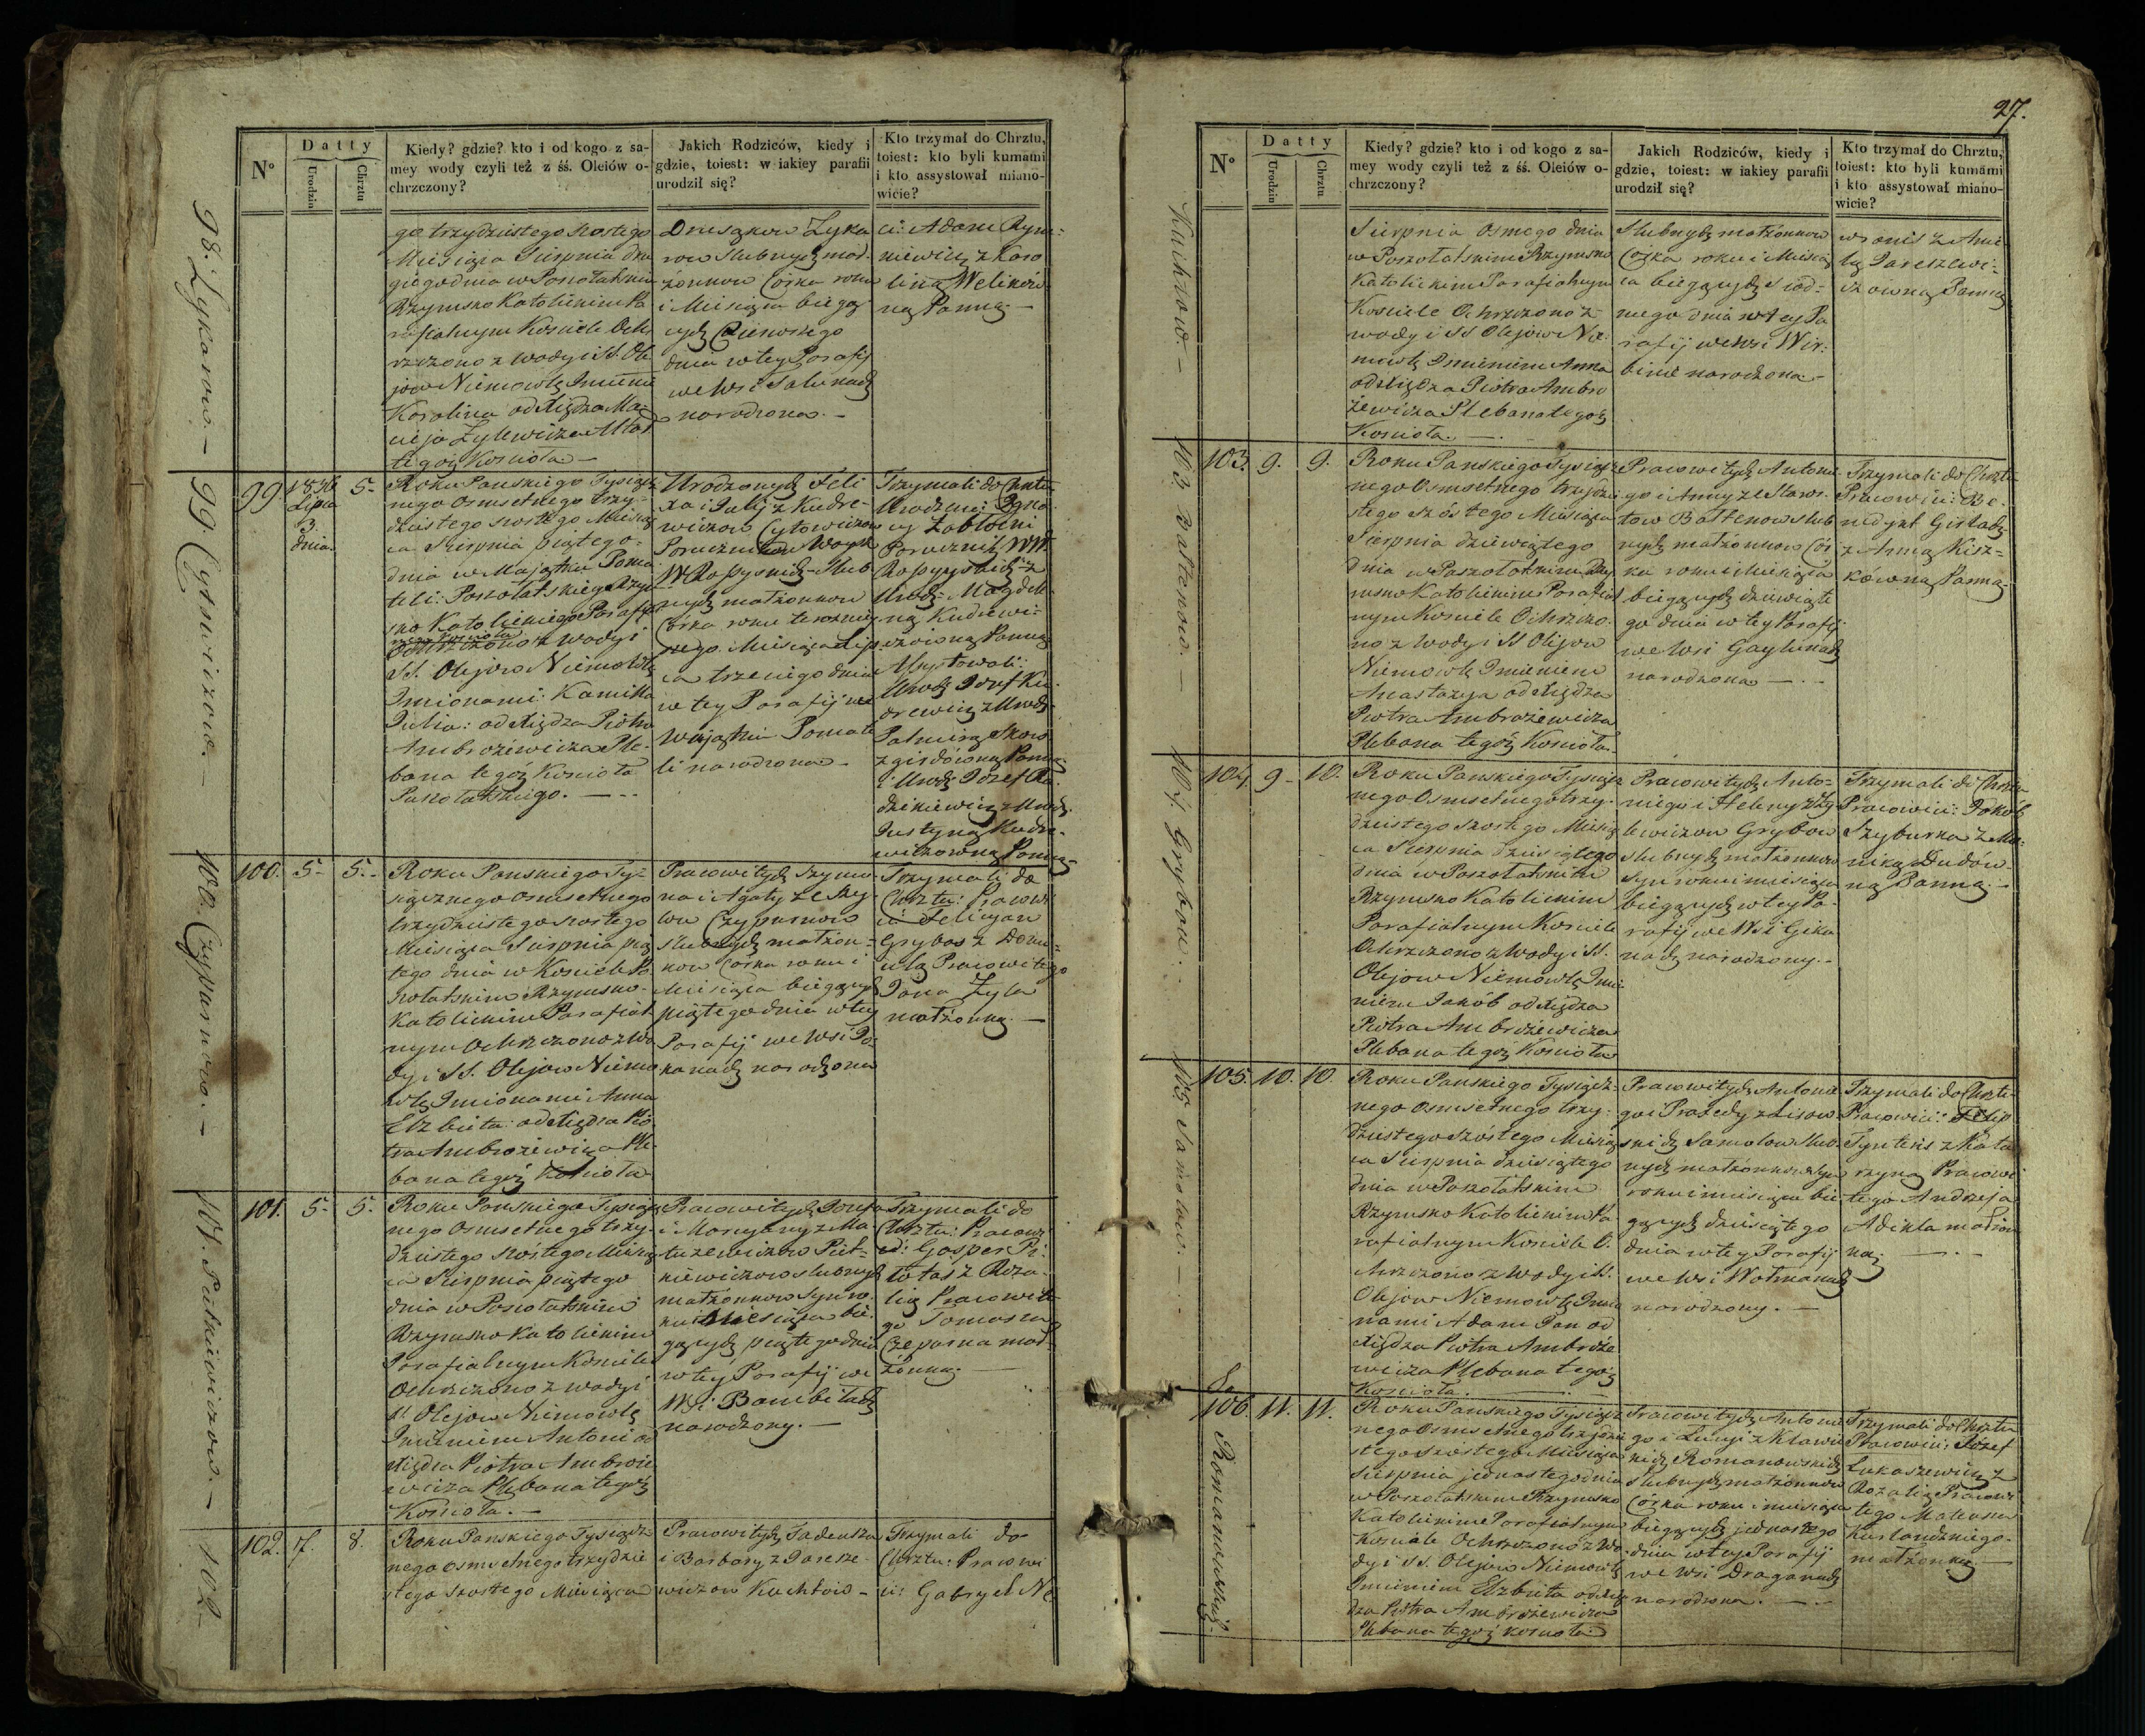 27.
Nº
Datty
Urodzin
Chrztu
Kiedy? gdzie? kto i od kogo z sa-
mey wody czyli też z śś. Oleiów o-
chrzczony?
Jakich Rodziców, kiedy i
gdzie, toiest: w iakiey parafii
urodził się?
Kto trzymał do Chrztu,
toiest: kto byli kumami
i kto assystował miano-
wicie?
98. Zykarow.
go trzydziestego szostego
Miesiąca Sierpnia dru
giego dnia w Poszołatskim
Rzymsko Katolickim Pa
rafialnym Kościele Och
rzczono z wody i SS. Ole
jow Niemowle Imieniem
Karolina od Xiędza Ma
cieja Żylewicza Altar
tegoż Kościoła. —
Zyka
row Slubnych mał
żonkow Corka roku
i Miesiąca bieżą
cych Pierwszego
dnia w tey Parafij
we Wsi
narodzona. —
ci: Adam Rym-
niewicz z Karo
liną
ną Panną. —
99. Cytowiczow. —
99
1836
Lipca
3.
dnia
5.
Roku Panskiego Tysiącz
nego Osmsetnego trzy-
dziestego szostego Miesią
ca Sierpnia piątego
dnia w Majątku Poma
teli: Poszołatskiego Rzym
sko Katolickiego Parafi
Ochrzczono z wody i
SS. Olejow Niemowle
Imionami: Kamilla
Julia: od Xiędza Piotra
Ambrożewicza Ple-
bana tegoż Kościoła
Poszołatskiego. —
Urodzonych Feli
xa i Julij z Kudre-
wiczow Cytowiczow
Porucznikow Woysk
W Rossyiskich Slub
nych małżonkow
Corka roku teraźniey
szego Miesiąca Lip
ca trzeciego dnia
w tey Parafij we
Majątku Pomate
li narodzona —
Trzymali do Chrztu
Urodzeni: Igna
cy Zabłocki
Porucznik WW.
Rossyyskich z
Urodz: Magdale
ną Kudrewi-
czowną Panną
Assystowali:
Urodz Jozef Ku
drewicz z Urodz:
Palmirą Skow
zgirdowną Panną
i Urodz Jozef Ra
dzikiewicz z Urodz.
Justyną Kudre-
wiczowną Panną
100. Czypurnow. —
100.
5.
5.
Roku Panskiego Ty-
siącznego Osmsetnego
trzydziestego szostego
Miesiąca Sierpnia pią
tego dnia w Kosciele Po
szołatskim Rzymsko-
Katolickim Parafial
nym Ochrzczono z Wo
dy i SS. Olejow Niemo
wle Imionami: Anna
Elżbieta: od Xiędza Pio
tra Ambrożewicza Ple
bana tegoż Kościoła
Pracowitych Szymo
na i Agaty
Czypurnow
Slubnych małżon-
kow Corka roku i
Miesiąca bieżących
piątego dnia w tey
Parafij we Wsi Po
kanach narodzona
Trzymali do
Chrztu: Pracowi
ci: Felicyan
Grybos z Domi-
celą Pracowitego
Jana Zyla
małżonką. —
101. Putkiewiczow. —
101.
5.
5.
Roku Panskiego Tysiącz
nego Osmsetnego trzy-
dziestego szóstego Miesią
ca Sierpnia piątego
dnia w Poszołatskim
Rzymsko Katolickim
Parafialnym Kosciele
Ochrzczono z wody i
SS Olejow Niemowle
Imieniem Antoni od
Xiędza Piotra Ambroże
wicza Plebana tegoż
Kościoła. —
Pracowitych Jozefa
i Maryanny z Ma
tuzewiczow Put-
kiewiczow slubnych
małżonkow Syn ro
ku i Miesiąca bie-
żących piątego dnia
w tey Parafij we
Wsi: Bambilach
narodzony. —
Trzymali do
Chrztu: Pracowi
ci: Gasper Pi-
totas z Roza-
lią Pracowite
go Tomasza
Czepurna mał-
żonką. —
102
102.
7.
8.
Roku Panskiego Tysiącz-
nego osmsetnego trzydzie
stego szostego Miesiąca
Pracowitych Tadeusza
i Barbary z Daresze-
wiczow Kuchtow-
Trzymali do
Chrztu: Pracowi
ci: Gabryel Ne
Nº
Datty
Urodzin
Chrztu
Kiedy? gdzie? kto i od kogo z sa-
mey wody czyli też z śś. Oleiów o-
chrzczony?
Jakich Rodziców, kiedy i
gdzie, toiest: w iakiey parafii
urodził się?
Kto trzymał do Chrztu,
toiest: kto byli kumami
i kto assystował miano-
wicie?
Kuchtow. —
Sierpnia Osmego dnia
w Poszołatskim Rzymsko
Katolickim Parafialnym
Kosciele Ochrzczono z
wody i SS Olejow Nie-
mowle Imieniem Anna
od Xiędza Piotra Ambro
żewicza Plebana tegoż
Kościoła. —
Slubnych małżonkow
Corka roku i Miesią
ca bieżących siod-
mego dnia w tey Pa
rafij we Wsi Wir-
binie narodzona —
wronis z Ame
lą Dareszewi-
czowną Panną
103 Baltenow. —
103.
9.
9.
Roku Panskiego Tysiącz
nego Osmsetnego trzydzie
stego szóstego Miesiąca
Sierpnia dziewiątego
dnia w Poszołatskim Rzy
msko Katolickim Parafial
nym Kosciele Ochrzczo
no z Wody i SS Olejow
Niemowle Imieniem
Anastazya od Xiędza
Piotra Ambrożewicza
Plebana tegoż Kościoła.
Pracowitych Antonie
go i Anny
Baltenow slub
nych małżonkow Cór
ka roku i Miesiąca
bieżących dziewiąte
go dnia w tey Parafij
we Wsi Gaylunach
narodzona —
Trzymali do Chrztu
Pracowici: Be-
nedykt
z Anną Kisz-
kówną Panną.
104. Grybow. —
104.
9.
10.
Roku Panskiego Tysiącz
nego Osmsetnego trzy-
dziestego szostego Miesią
ca Sierpnia dziesiątego
dnia w Poszołatskim
Rzymsko Katolickim
Parafialnym Kosciele
Ochrzczono z Wody i SS.
Olejow Niemowle Imi-
niem Jakób od Xiędza
Piotra Ambrożewicza
Plebana tegoż Kościoła
Pracowitych Anto-
niego i Heleny z Zy
lewiczow Grybow
slubnych małżonkow
Syn roku i miesiąca
bieżących w tey Pa-
rafij we Wsi Gika
nach narodzony. —
Trzymali do Chrztu
Pracowici: Jakób
Szyburka z Mo-
niką Dudów-
ną Panną. —
105. Samolow. —
105.
10.
10.
Roku Panskiego Tysiącz-
nego osmsetnego trzy-
dziestego szóstego Miesią
ca Sierpnia dziesiątego
dnia w Poszołatskim
Rzymsko Katolickim Pa-
rafialnym Kosciele O-
chrzczono z Wody i SS.
Olejow Niemowle Imio
nami Adam Jan od
Xiędza Piotra Ambroże
wicza Plebana tegoż
Kościoła. —
Pracowitych Antonie
go i Praxedy z Lisow
skich Samolow slub-
nych małżonkow Syn
roku i miesiąca bie
żących dziesiątego
dnia w tey Parafij
we Wsi Wołmanach
narodzony. —
Trzymali do Chrztu
Pracowici: Filip
Tynteris z Kata
rzyną Pracowi
tego Andrzeja
Adikla małżon
ką. —
106
Romanowskich.
106.
11.
11.
Roku Panskiego Tysiącz
nego Osmsetnego trzydzie
stego szostego Miesiąca
Sierpnia jednastego dnia
w Poszołatskim Rzymsko
Katolickim Parafialnym
Kosciele Ochrzczono z Wo-
dy i SS. Olejow Niemowle
Imieniem Elżbieta od Xię
dza Piotra Ambrożewicza
Plebana tegoż Kościoła
Pracowitych Antonie
go i Łucyi z Klawiń
skich Romanowskich
slubnych małżonkow
Córka roku i miesiąca
bieżących jednastego
dnia w tey Parafij
we Wsi Draganach
narodzona. —
Trzymali do Chrztu
Pracowici: Józef
Lukaszewicz z
Rozalią Pracowi
tego Mateusza
Kurlandzkiego
małżonką. —